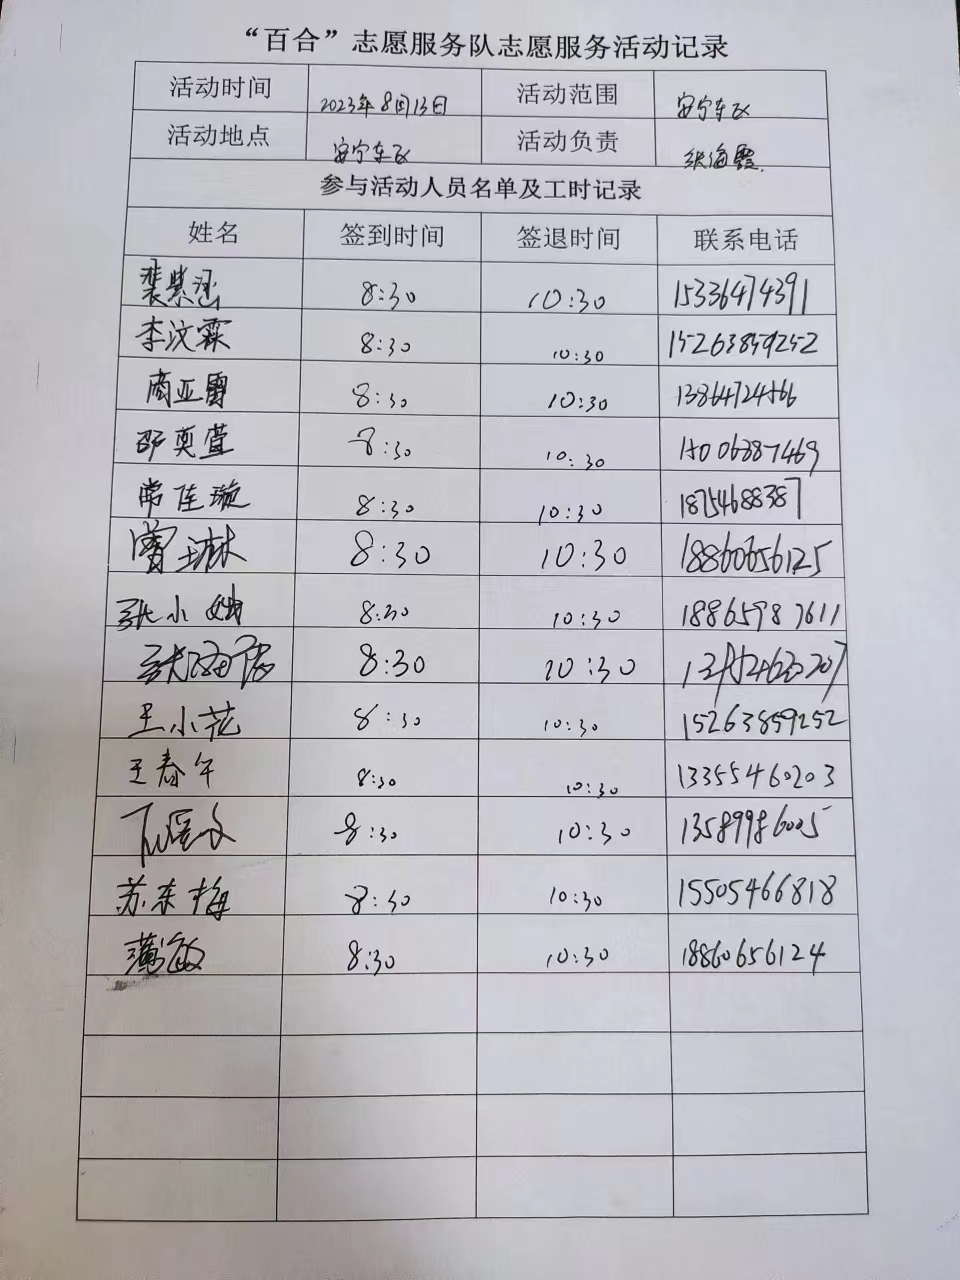 “百合”志愿服务队志愿服务活动记录
活动时间 2023年8月13日 活动范围 安宁东区
活动地点 安宁东区 活动负责 张海霞
参与活动人员名单及工时记录
姓名 签到时间 签退时间 联系电话
裴紫涵 8:30 10:30 15336474391
李汶霖 8:30 10:30 15263859252
商亚雷 8:30 10:30 13864724566
邵奕萱 8:30 10:30 15006387469
常佳璇 8:30 10:30 18754688387
8:30 10:30 18860656125
张小娥 8:30 10:30 18865987611
8:30 10:30
王小花 8:30 10:30 15263859252
王春午 8:30 10:30 13355460203
8:30 10:30 13589986005
苏东梅 8:30 10:30 15505466818
薄敏 8:30 10:30 18860656124